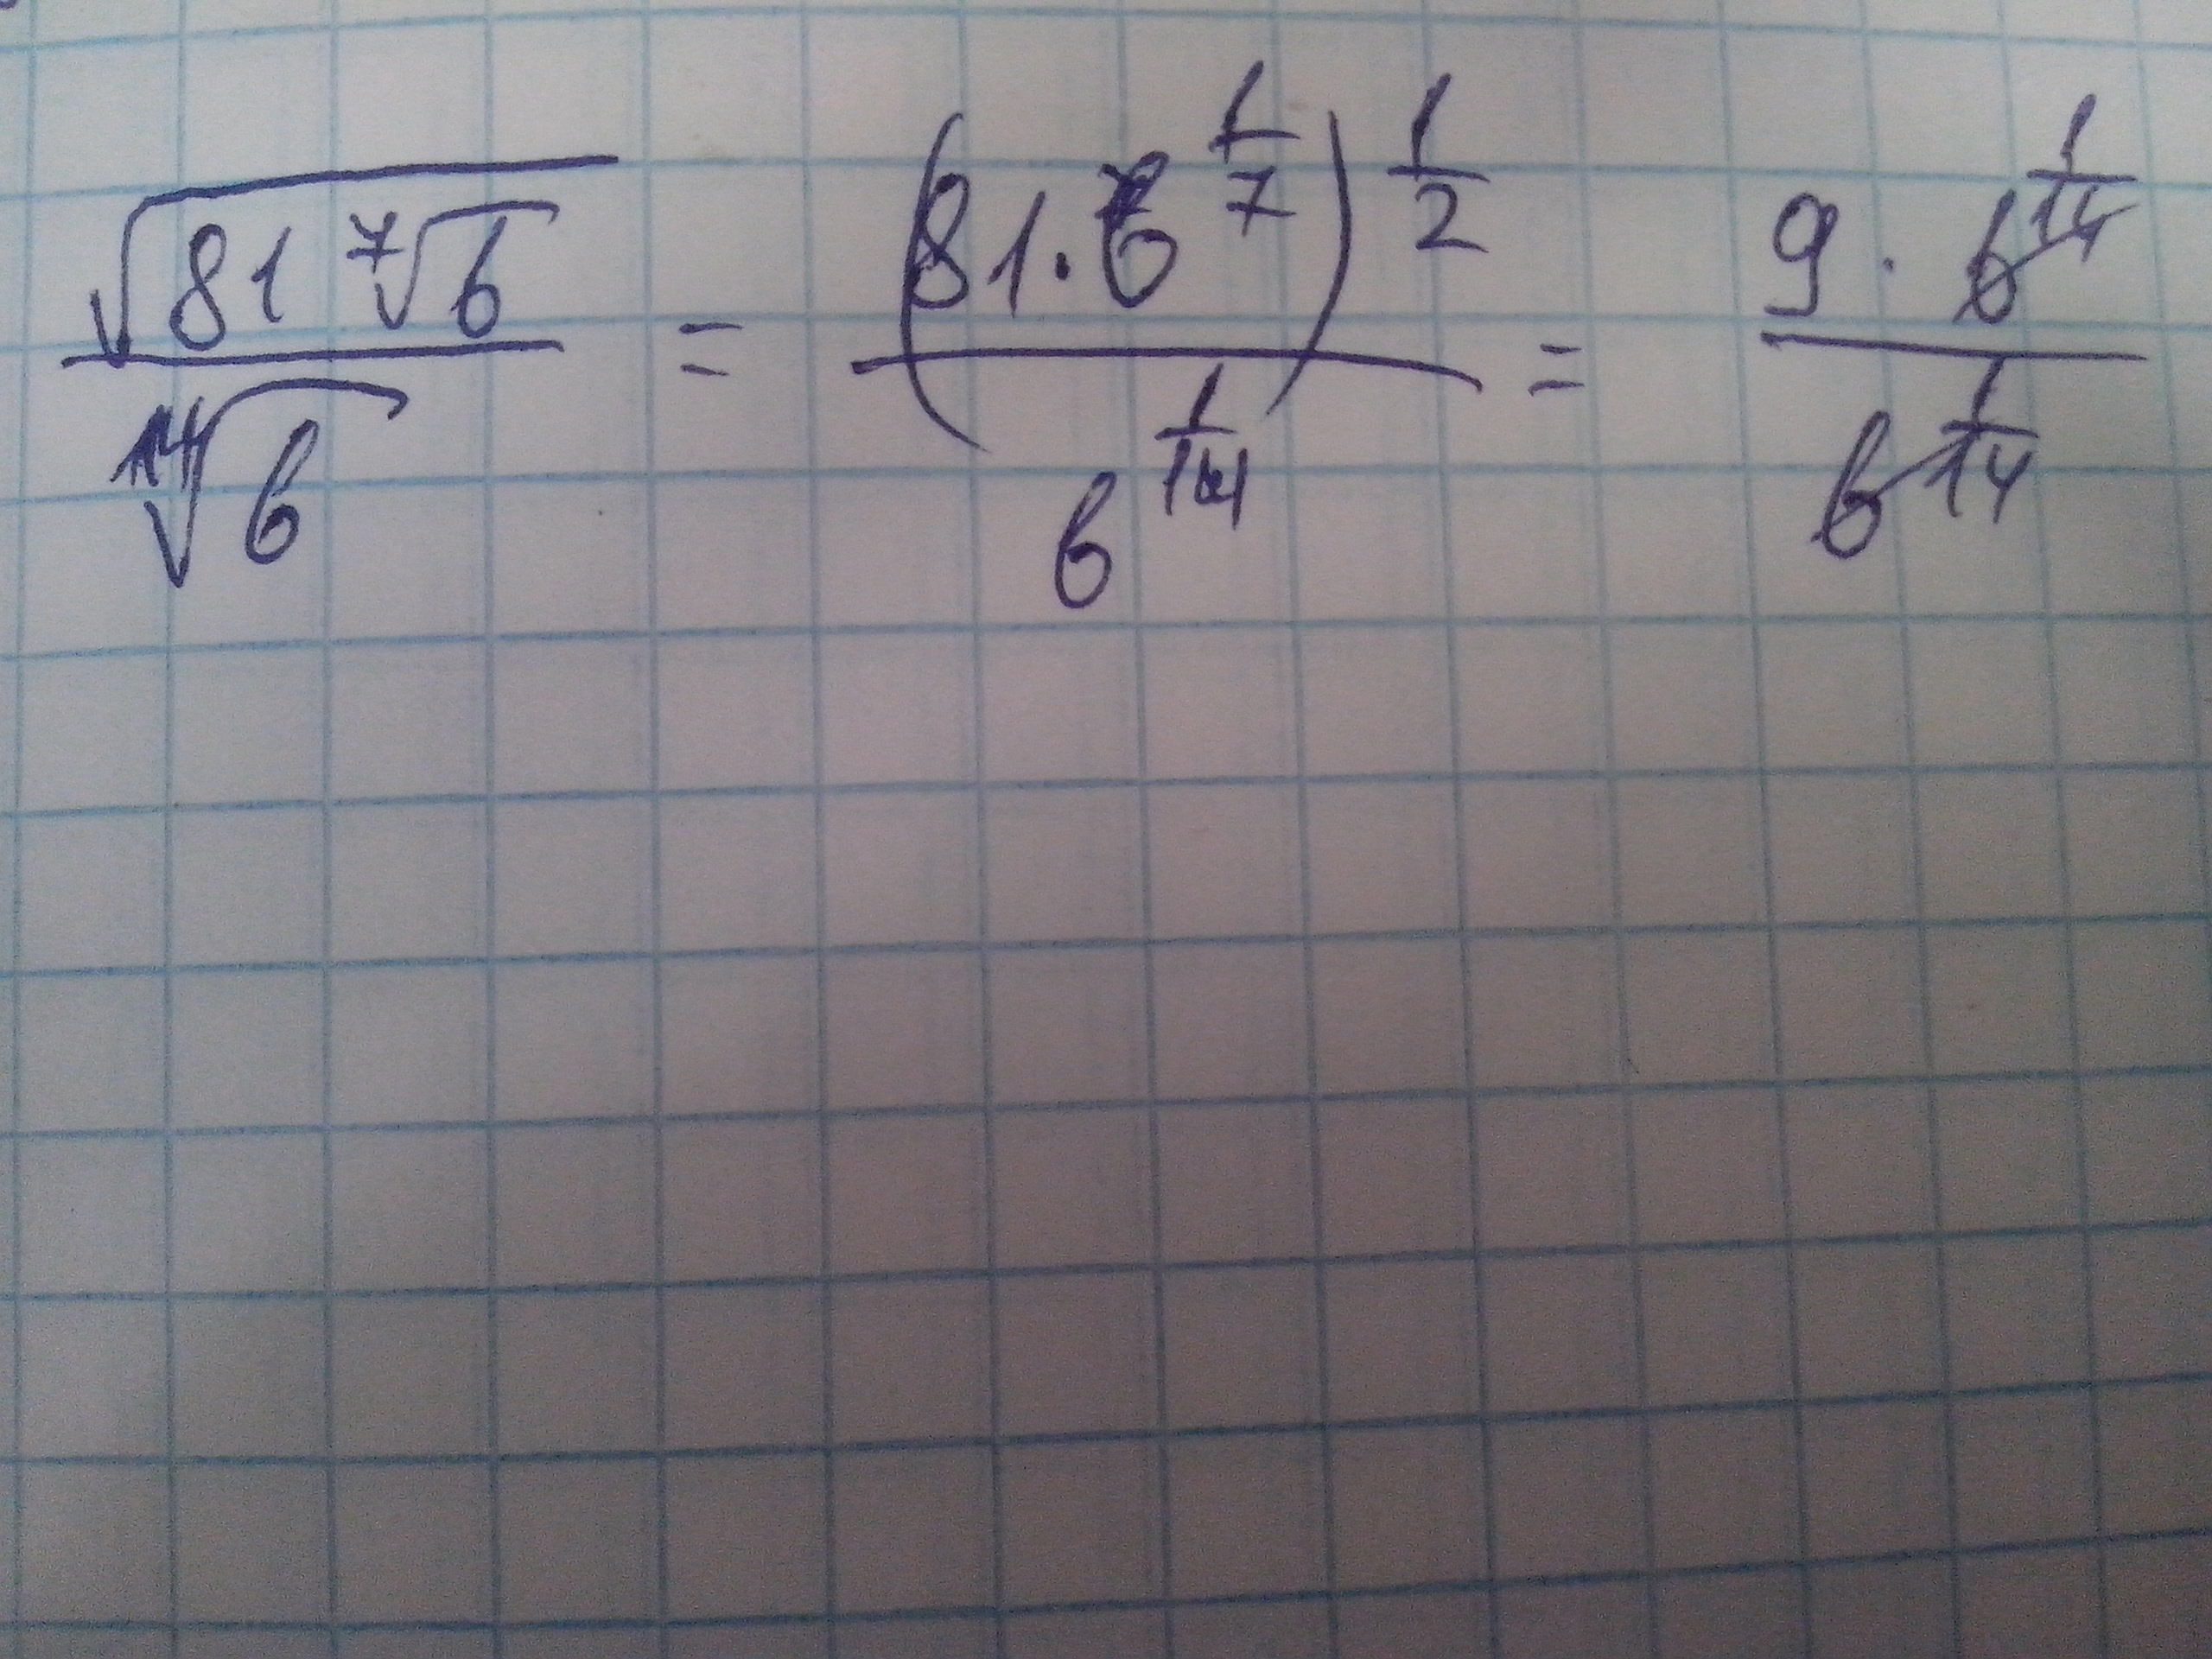 \frac{\sqrt{81\sqrt[7]{b}}}{\sqrt[14]{b}} = \frac{(81 \cdot b^{\frac{1}{7}})^{\frac{1}{2}}}{b^{\frac{1}{14}}} = \frac{9 \cdot b^{\frac{1}{14}}}{b^{\frac{1}{14}}}